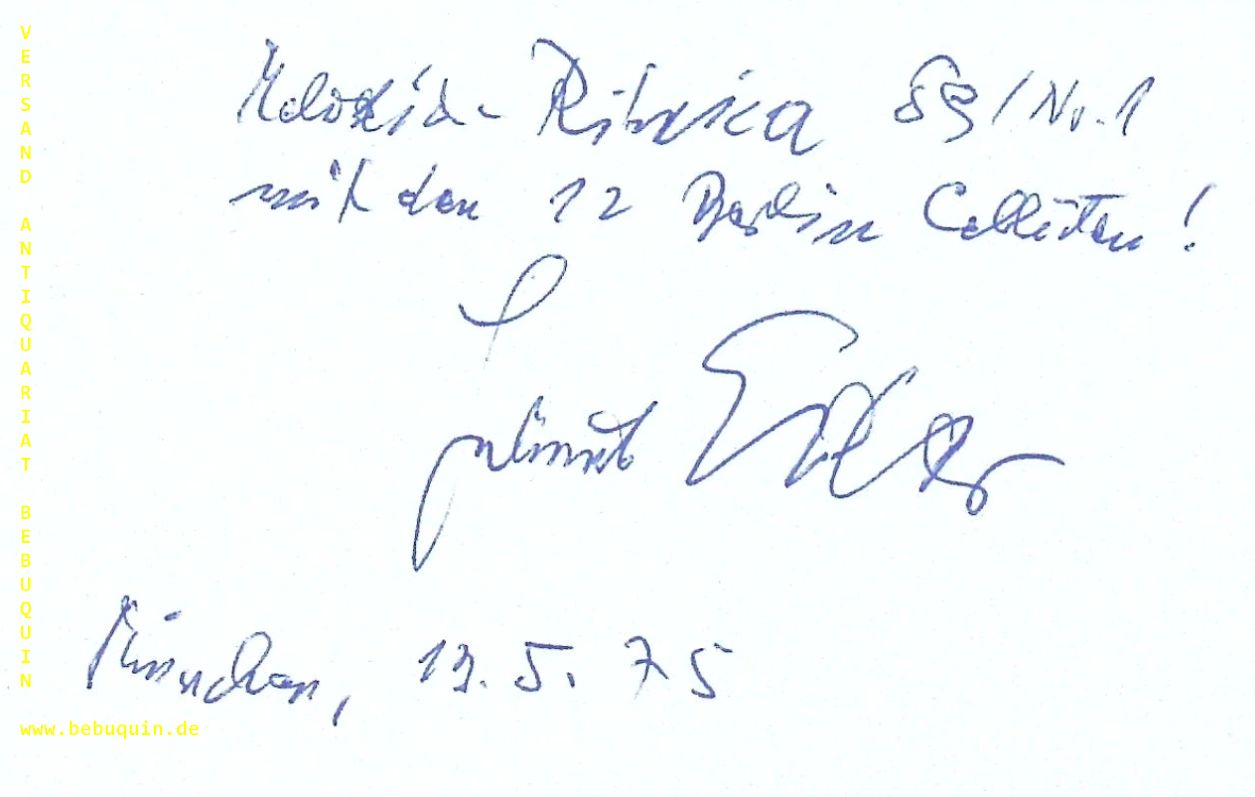 Melodia-Ritmica 59/Nr.1
mit den 12 Berlin Cellisten!
Helmut Eder
München, 13.5.75
VERSAND ANTIQUARIAT BEBUQUIN
www.bebuquin.de